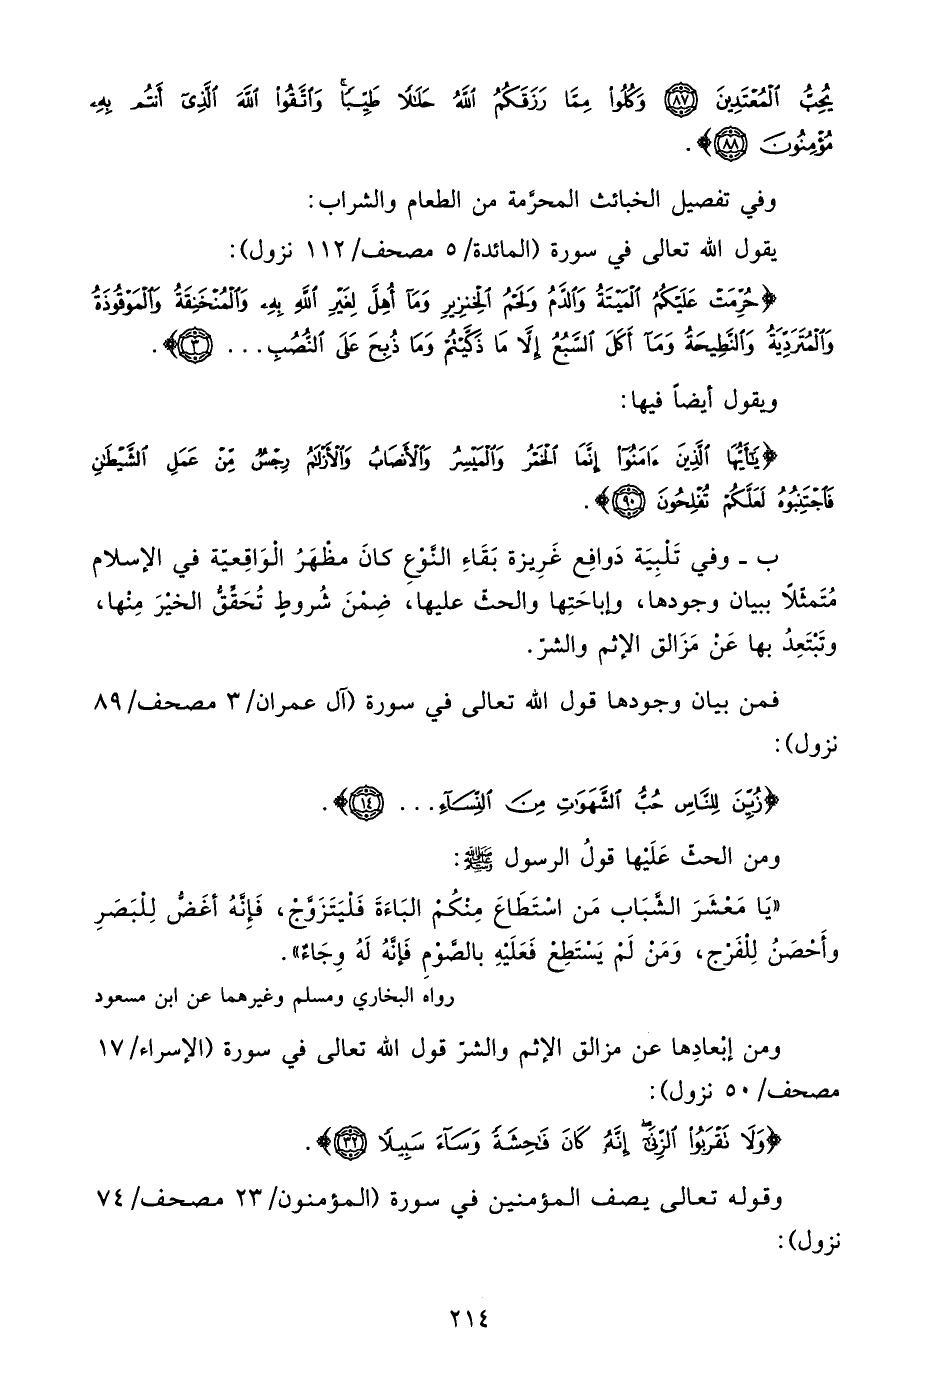 يُحِبُّ ٱلْمُعْتَدِينَ ﴿٨٧﴾ وَكُلُوا۟ مِمَّا رَزَقَكُمُ ٱللَّهُ حَلَٰلًا طَيِّبًا ۚ وَٱتَّقُوا۟ ٱللَّهَ ٱلَّذِىٓ أَنتُم بِهِۦ
مُؤْمِنُونَ ﴿٨٨﴾﴾.
وفي تفصيل الخبائث المحرَّمة من الطعام والشراب:
يقول الله تعالى في سورة (المائدة/ ٥ مصحف/ ١١٢ نزول):
﴿حُرِّمَتْ عَلَيْكُمُ ٱلْمَيْتَةُ وَٱلدَّمُ وَلَحْمُ ٱلْخِنزِيرِ وَمَآ أُهِلَّ لِغَيْرِ ٱللَّهِ بِهِۦ وَٱلْمُنْخَنِقَةُ وَٱلْمَوْقُوذَةُ
وَٱلْمُتَرَدِّيَةُ وَٱلنَّطِيحَةُ وَمَآ أَكَلَ ٱلسَّبُعُ إِلَّا مَا ذَكَّيْتُمْ وَمَا ذُبِحَ عَلَى ٱلنُّصُبِ... ﴿٣﴾﴾.
ويقول أيضاً فيها:
﴿يَٰٓأَيُّهَا ٱلَّذِينَ ءَامَنُوٓا۟ إِنَّمَا ٱلْخَمْرُ وَٱلْمَيْسِرُ وَٱلْأَنصَابُ وَٱلْأَزْلَٰمُ رِجْسٌ مِّنْ عَمَلِ ٱلشَّيْطَٰنِ
فَٱجْتَنِبُوهُ لَعَلَّكُمْ تُفْلِحُونَ ﴿٩٠﴾﴾.
ب ـ وفي تَلْبِيَة دَوافِع غَرِيزة بَقَاءِ النَّوْعِ كانَ مظْهَرُ الْوَاقِعيّة في الإسلام
مُتَمثِّلاً ببيان وجودها، وإباحَتِها والحثّ عليها، ضِمْنَ شُروطٍ تُحَقِّقُ الخيْرَ مِنْها،
وتَبْتَعِدُ بها عَنْ مَزَالق الإثم والشرّ.
فمن بيان وجودها قول الله تعالى في سورة (آل عمران/ ٣ مصحف/ ٨٩
نزول):
﴿زُيِّنَ لِلنَّاسِ حُبُّ ٱلشَّهَوَٰتِ مِنَ ٱلنِّسَآءِ... ﴿١٤﴾﴾.
ومن الحثّ عَلَيْها قولُ الرسول ﷺ:
«يَا مَعْشَرَ الشَّبَاب مَن اسْتَطَاعَ مِنْكُمْ البَاءَةَ فَلْيَتَزَوَّجْ، فَإِنَّهُ أغَضُّ لِلْبَصَرِ
وأَحْصَنُ لِلْفَرْجِ، وَمَنْ لَمْ يَسْتَطِعْ فَعَلَيْهِ بالصَّوْمِ فَإنَّهُ لَهُ وِجَاءٌ».
رواه البخاري ومسلم وغيرهما عن ابن مسعود
ومن إبْعادِها عن مزالق الإثم والشرّ قول الله تعالى في سورة (الإسراء/ ١٧
مصحف/ ٥٠ نزول):
﴿وَلَا تَقْرَبُوا۟ ٱلزِّنَىٰٓ ۖ إِنَّهُۥ كَانَ فَٰحِشَةً وَسَآءَ سَبِيلًا ﴿٣٢﴾﴾.
وقوله تعالى يصف المؤمنين في سورة (المؤمنون/ ٢٣ مصحف/ ٧٤
نزول):
٢١٤